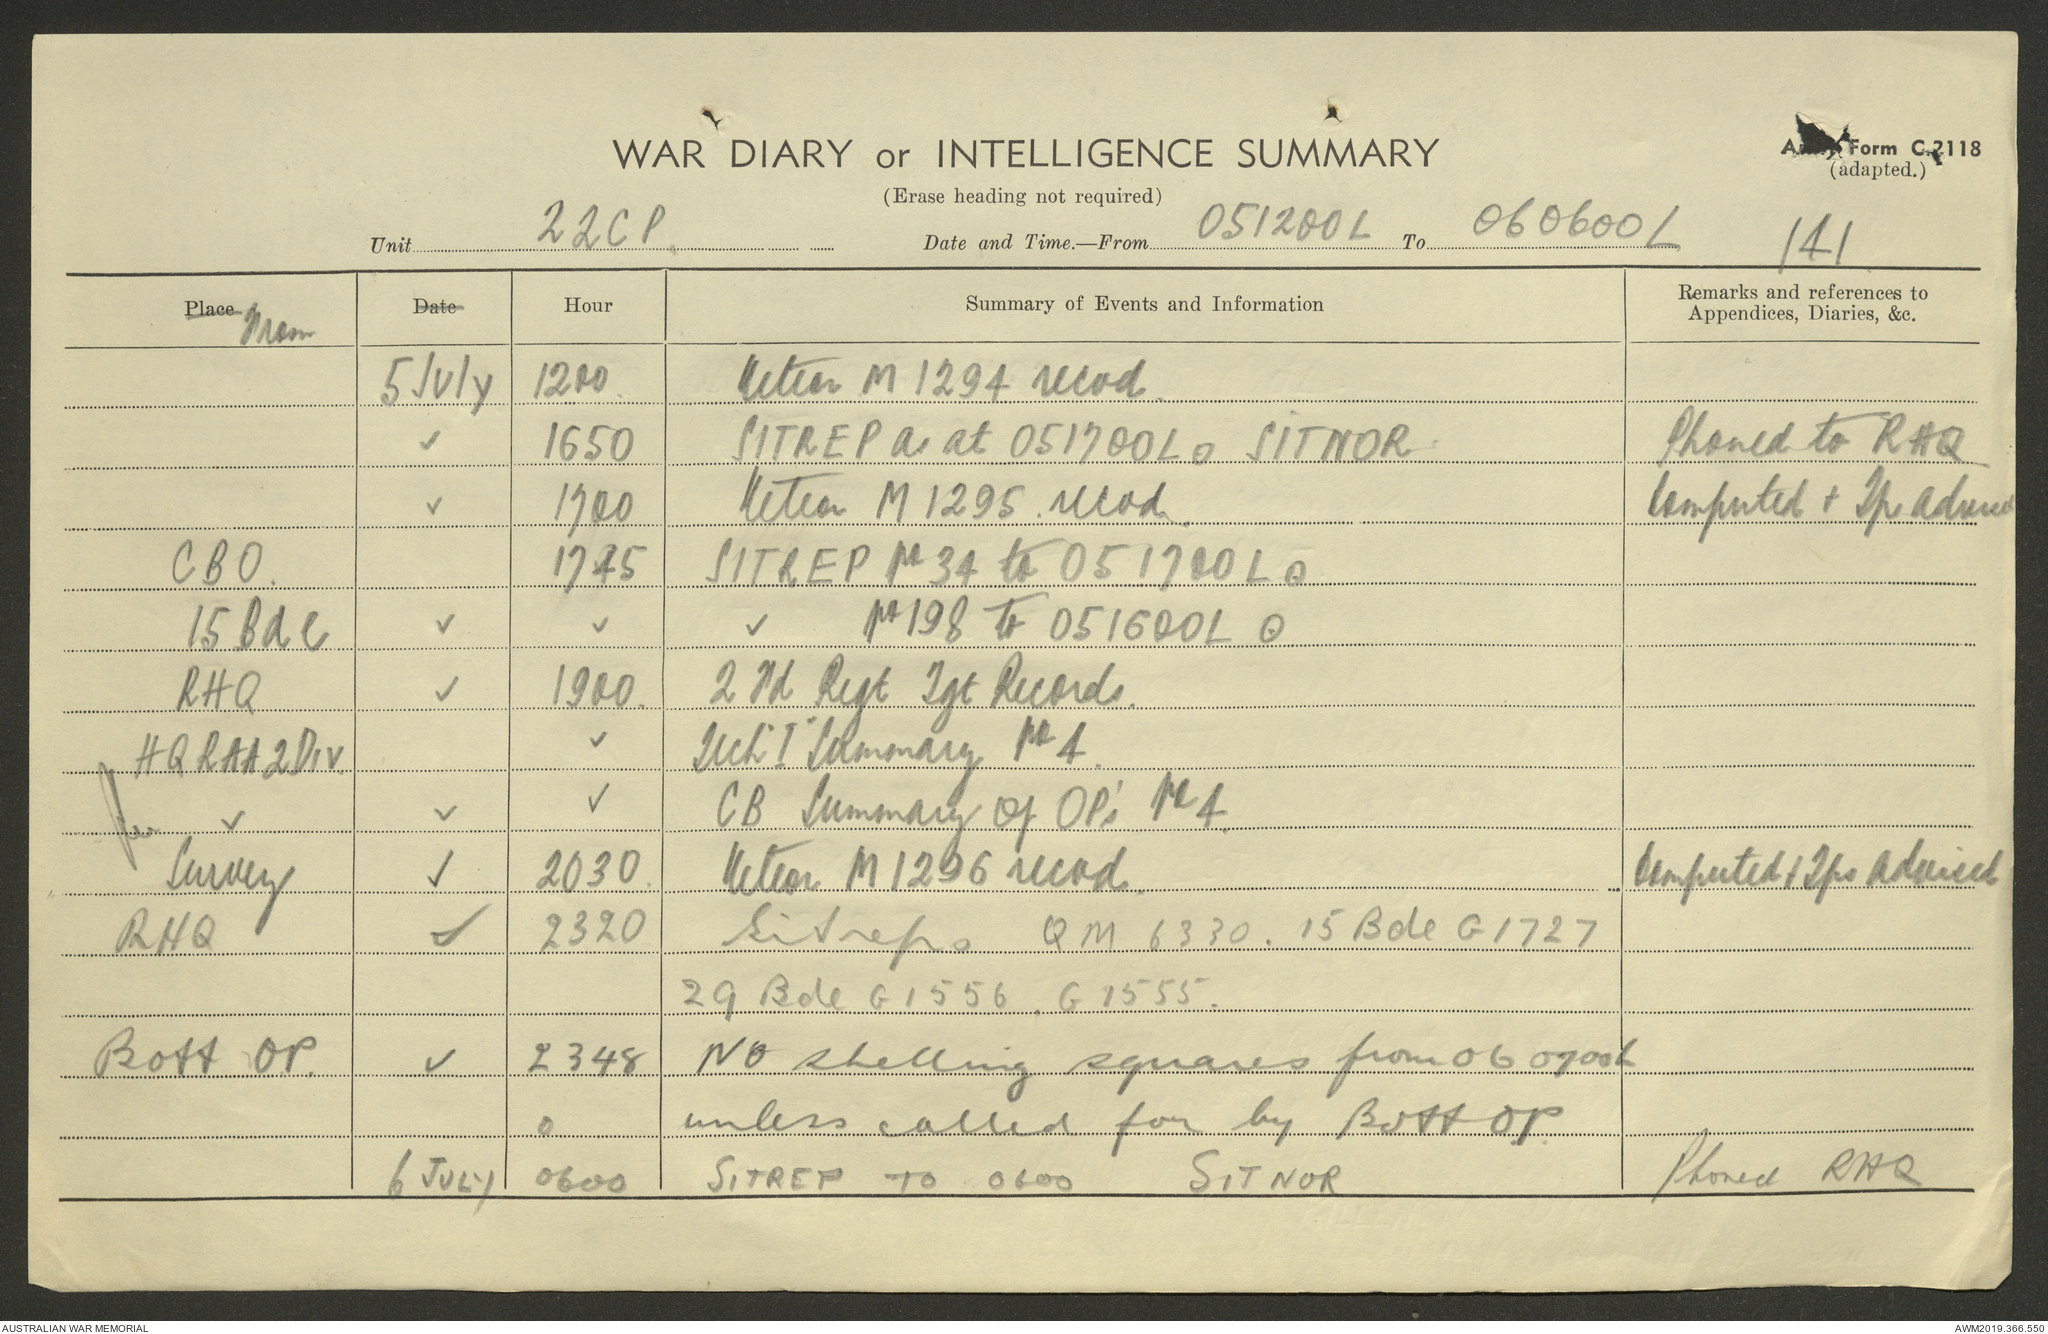 WAR DIARY or INTELLIGENCE SUMMARY
(Erase heading not required)
Army Form C.2118
(adapted.)
Unit 22CP. Date and Time.—From 051200L To 060600L 141
Place From Date Hour Summary of Events and Information Remarks and references to Appendices, Diaries, &c.
5 July 1200. Meteor M 1294 recvd.
✓ 1650 SITREP as at 051700L o SITNOR Phoned to RHQ
✓ 1700 Meteor M 1295 recvd. Computed + Tps advised
CBO. 1745 SITREP No 34 to 051700L o
15 Bde ✓ ✓ ✓ No 198 to 051600L o
RHQ ✓ 1900. 2 Fd Regt Tgt Records.
HQ RAA 2 Div. ✓ Tech "I" Summary No 4.
✓ ✓ ✓ CB Summary of OP's No 4.
Survey ✓ 2030. Meteor M 1296 recvd. Computed + Tps advised
RHQ ✓ 2320 Sitreps QM 6330. 15 Bde G1727
29 Bde G1556. G1555.
Bott OP. ✓ 2348 No shelling squares from 060700L
o unless called for by Bott OP.
6 JULY 0600 SITREP TO 0600 SITNOR Phoned RHQ
AUSTRALIAN WAR MEMORIAL
AWM2019.366.550